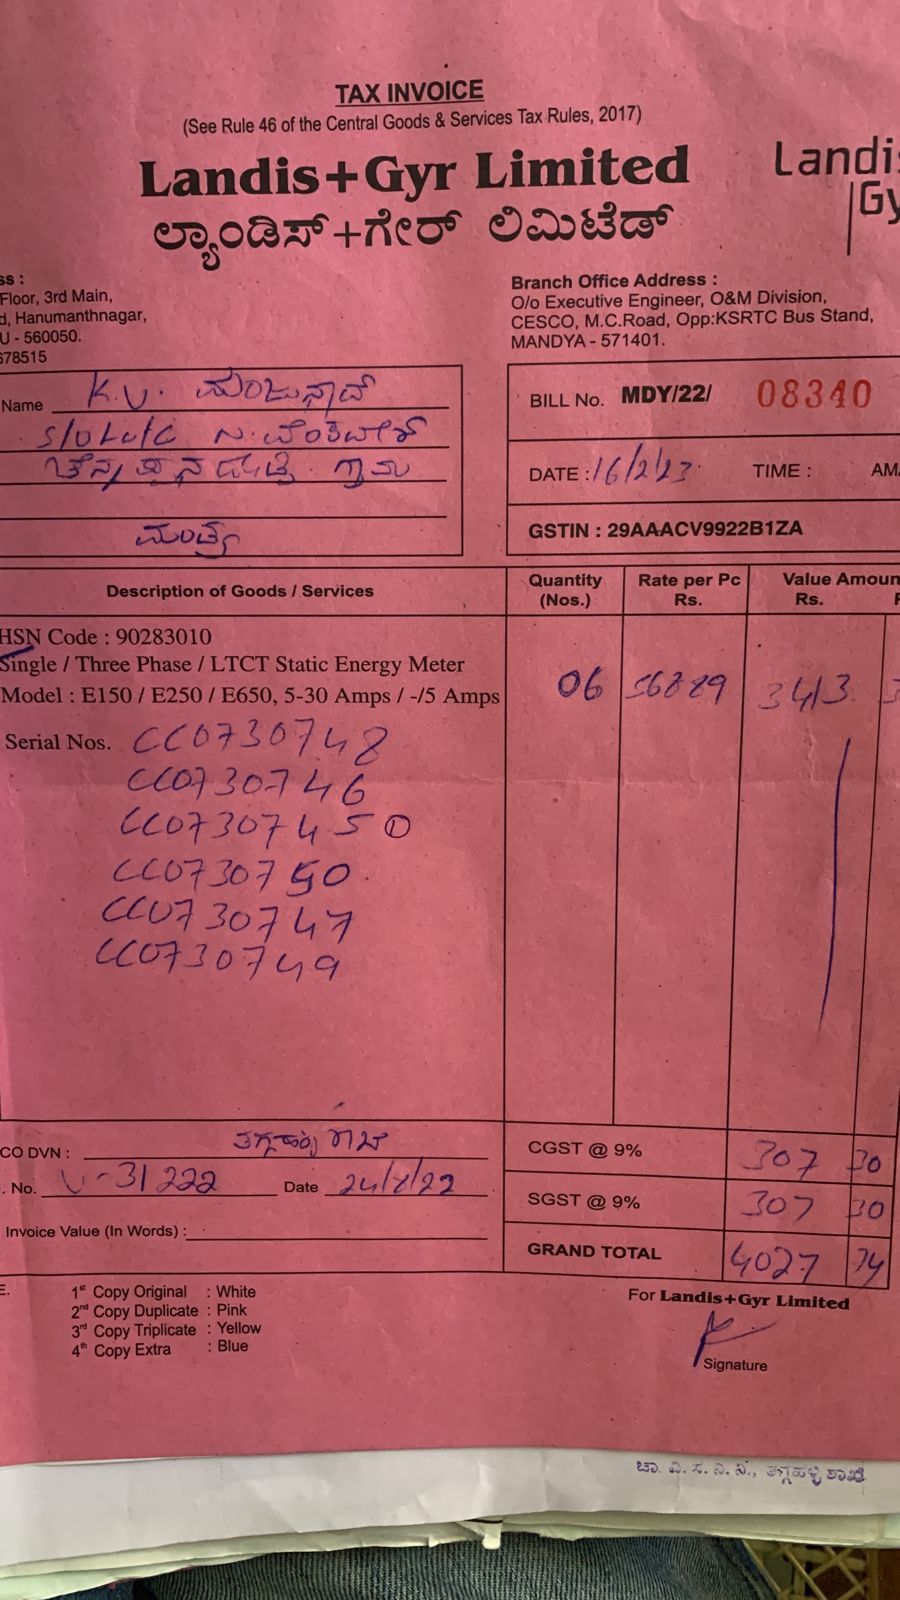 TAX INVOICE
(See Rule 46 of the Central Goods & Services Tax Rules, 2017)
Landis+Gyr Limited
ಲ್ಯಾಂಡಿಸ್+ಗೇರ್ ಲಿಮಿಟೆಡ್
Landis
Gy
ss :
Floor, 3rd Main,
d, Hanumanthnagar,
U - 560050.
678515
Branch Office Address :
O/o Executive Engineer, O&M Division,
CESCO, M.C.Road, Opp:KSRTC Bus Stand,
MANDYA - 571401.
Name K.V. ಮಂಜುನಾಥ್
S/o
ಗ್ರಾಮ
ಮಂಡ್ಯ
BILL No. MDY/22/ 08340
DATE : 16/2/23 TIME : AM
GSTIN : 29AAACV9922B1ZA
Description of Goods / Services
Quantity (Nos.)
Rate per Pc Rs.
Value Amoun Rs.
HSN Code : 90283010
Single / Three Phase / LTCT Static Energy Meter
Model : E150 / E250 / E650, 5-30 Amps / -/5 Amps
06 56889 3413
Serial Nos. CC0730748
CC0730746
CC0730745
CC0730750
CC0730747
CC0730749
CO DVN :
. No. V-31222 Date
Invoice Value (In Words) :
CGST @ 9% 307 30
SGST @ 9% 307 30
GRAND TOTAL 4027 74
E.
1st Copy Original : White
2nd Copy Duplicate : Pink
3rd Copy Triplicate : Yellow
4th Copy Extra : Blue
For Landis+Gyr Limited
Signature
ಚಾ. ವಿ. ಸ. ನಿ. ನಿ., ತಗ್ಗಹಳ್ಳಿ ಶಾಖೆ